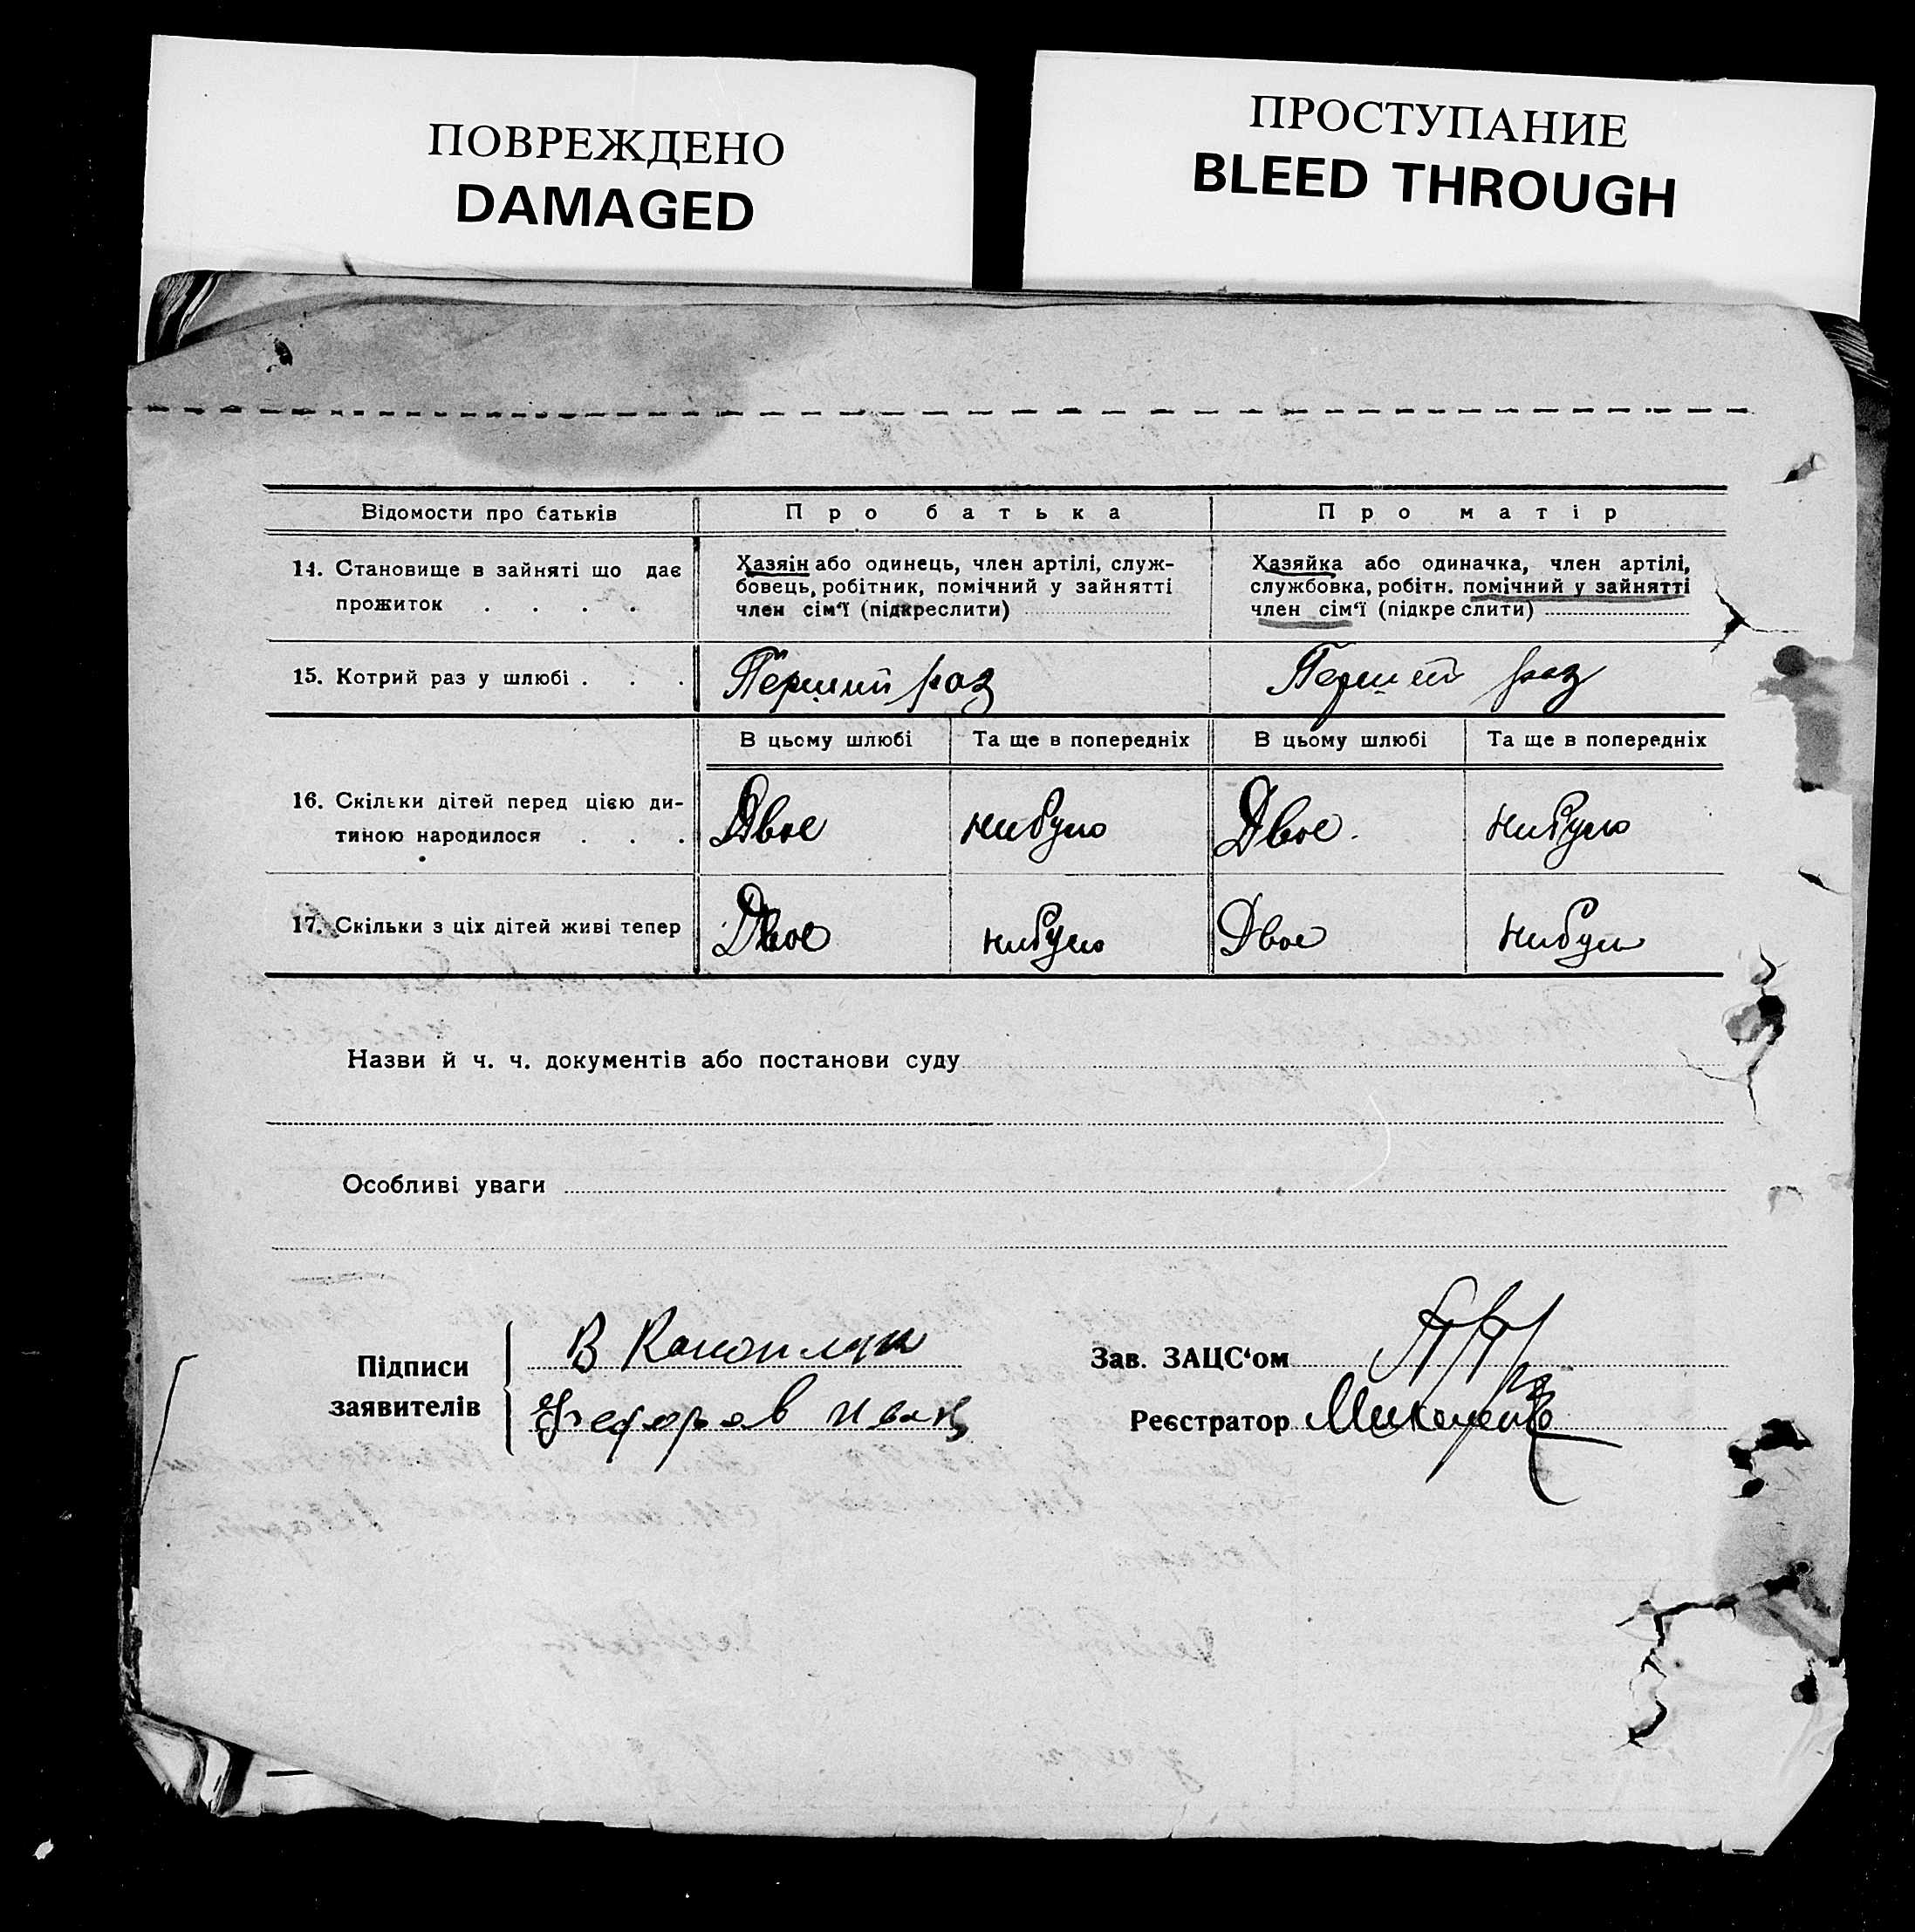 ПОВРЕЖДЕНО
DAMAGED
ПРОСТУПАНИЕ
BLEED THROUGH
Відомости про батьків
Про батька
Про матір
14. Становище в зайняті що дає
прожиток . . . .
Хазяін або одинець, член артілі, служ-
бовець, робітник, помічний у зайнятті
член сім'ї (підкреслити)
Хазяйка або одиначка, член артілі,
службовка, робітн. помічний у зайнятті
член сім'ї (підкреслити)
15. Котрий раз у шлюбі . . .
Перший раз
Перший раз
В цьому шлюбі
Та ще в попередніх
В цьому шлюбі
Та ще в попередніх
16. Скільки дітей перед цією ди-
тиною народилося . . .
Двое
нибуло
Двое.
нибуло
17. Скільки з ціх дітей живі тепер
Двое
нибуло
Двое
нибули
Назви й ч. ч. документів або постанови суду
Особливі уваги
Підписи
заявителів
В
Федоров Иван
Зав. ЗАЦС'ом
Реєстратор